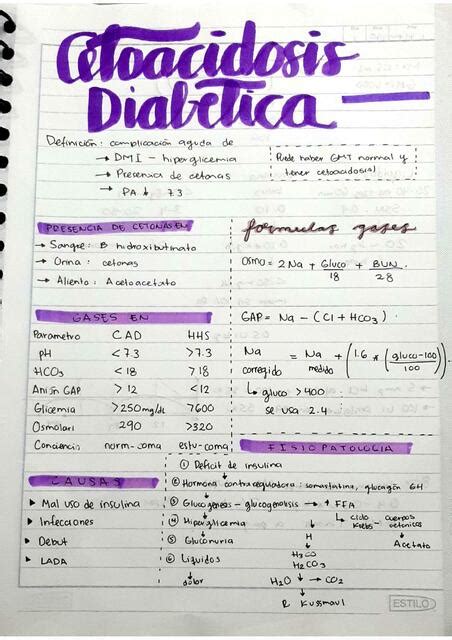 Cetoacidosis
Diabética
Definición: complicación aguda de
→ DMI - hiperglicemia
→ Presencia de cetonas
→ PA ↓ 7.3
Puede haber GMT normal y
tener cetoacidosis!
PRESENCIA DE CETONAS EN
→ Sangre: B hidroxibutirato
→ Orina: cetonas
→ Aliento: Acetoacetato
formulas gases
Osmo = 2Na + Gluco/18 + BUN/2.8
GAP = Na - (Cl + HCO3).
Na corregido = Na medido + (1.6 * (gluco-100)/100)
↳ gluco > 400
se usa 2.4
GASES EN
Parametro CAD HHS
pH <7.3 >7.3
HCO3 <18 >18
Anión GAP >12 <12
Glicemia >250mg/dL >600
Osmolari 290 >320
Conciencia norm-coma estu-coma
CAUSAS
▸ Mal uso de insulina
▸ Infecciones
▸ Debut
▸ LADA
FISIOPATOLOGIA
① Deficit de insulina
② Hormona contrareguladora: somatostatina, glucagón GH
③ Glucogenesis - glucogenolisis → ↑ FFA
↳ ciclo Krebs - cuerpos cetonicos
④ Hiperglicemia
↓ Acetato
⑤ Gluconuria H
⑥ Liquidos H3CO
H2CO3
dolor H2O ↓ → CO2
R Kussmaul
ESTILO